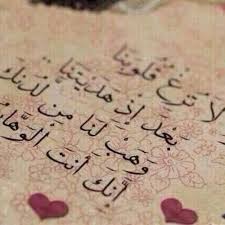 لَا تُزِغْ قُلُوبَنَا
بَعْدَ إِذْ هَدَيْتَنَا
وَهَبْ لَنَا مِن لَدُنكَ
أَنَّكَ أَنتَ الْوَهَّابُ